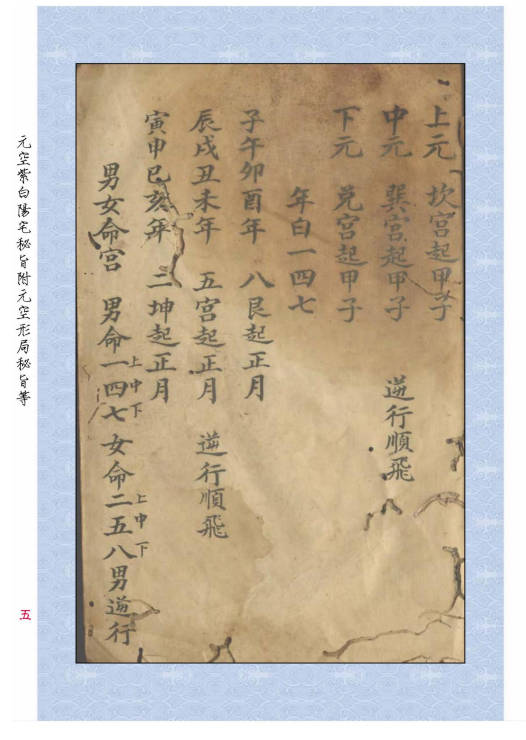 上元　坎宮起甲子
中元　巽宮起甲子　逆行順飛
下元　兌宮起甲子
年白一四七
子午卯酉年　八艮起正月
辰戌丑未年　五宮起正月　逆行順飛
寅申巳亥年　二坤起正月
男女命宮　男命一四七上中下　女命二五八上中下　男逆行
元空紫白陽宅秘旨附元空形局秘旨等
五